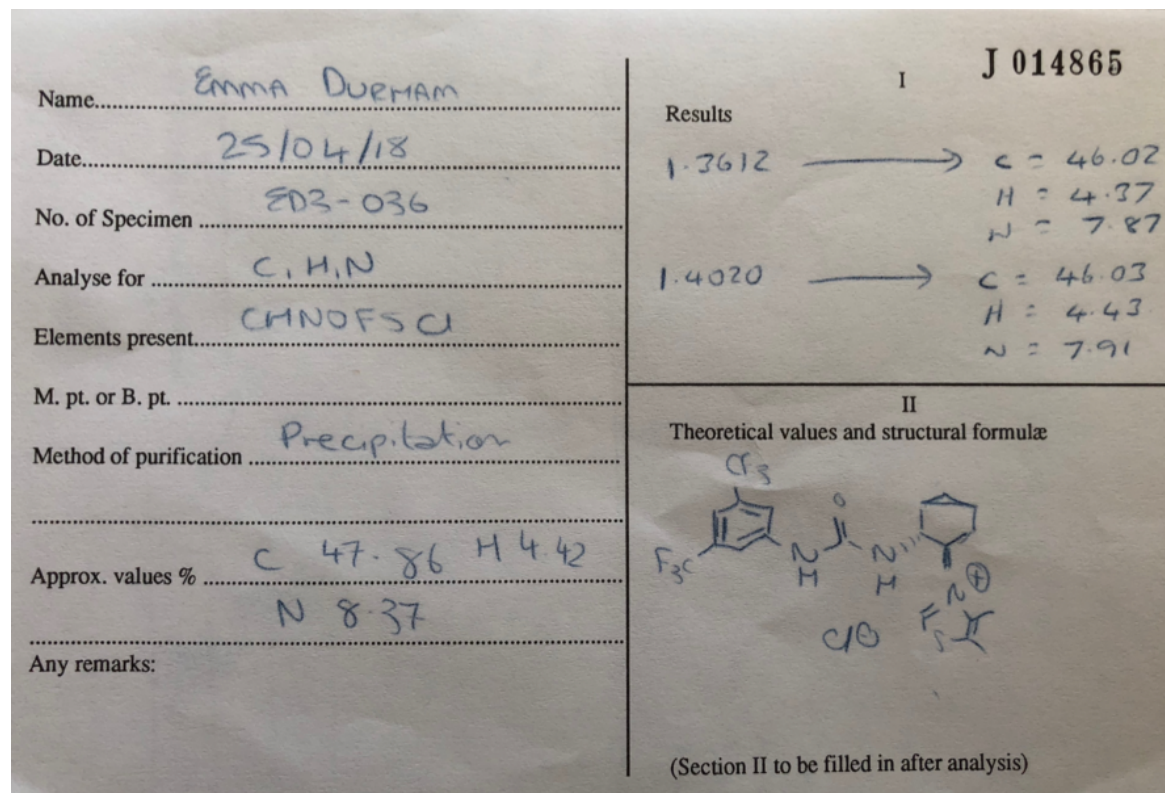 Name Emma Durham
Date 25/04/18
No. of Specimen ED3-036
Analyse for C, H, N
Elements present CHNOFSCl
M. pt. or B. pt.
Method of purification Precipitation
Approx. values % C 47.86 H 4.42
N 8.37
Any remarks:
J 014865
I
Results
1.3612 → C = 46.02
H = 4.37
N = 7.87
1.4020 → C = 46.03
H = 4.43
N = 7.91
II
Theoretical values and structural formulæ
CF3
O
F3C N N
H H
N ⊕
Cl⊖ S
(Section II to be filled in after analysis)